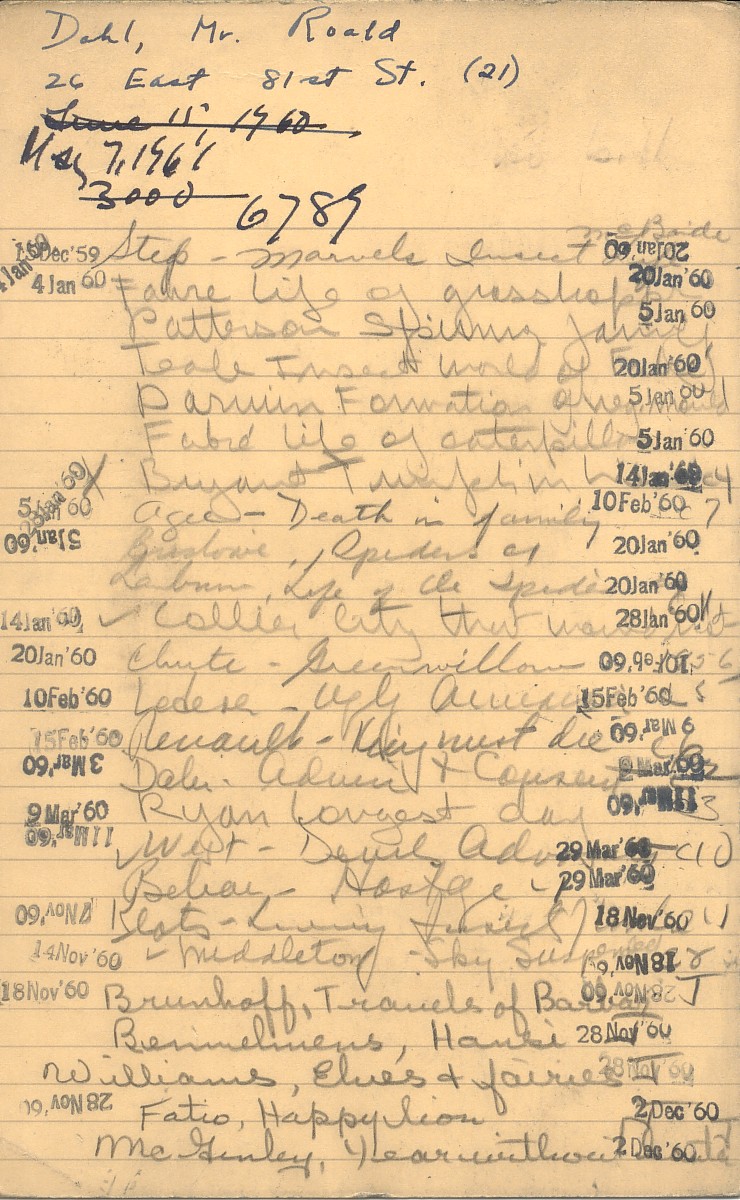 Dahl, Mr. Roald
26 East 81st St. (21)
June 15, 1960
May 7, 1961
3000 6789
15 Dec '59 Step - Marvels Insect 20 Jan '60
4 Jan 60 Fabre Life of grasshopper 20 Jan '60
Patterson Spinning 5 Jan '60
Teale Insect World of 20 Jan '60
Darwin Formation of veg. mould 5 Jan 60
Fabre life of caterpillar 5 Jan '60
Bryant 14 Jan '60
5 Jan 60 Agee - Death in family 10 Feb '60 7
5 Jan '60 Spiders 20 Jan '60
Life of the Spider 20 Jan '60
14 Jan '60 Collier City that 28 Jan '60
20 Jan '60 Chute - Greenwillow 10 Feb '60
10 Feb '60 Lederer - Ugly American 15 Feb '60
15 Feb '60 Renault - King must die 9 Mar '60
3 Mar '60 Advise + Consent 9 Mar '60
9 Mar '60 Ryan Longest day 11 Mar '60
11 Mar '60 West - Devil's Adv 29 Mar '60
Behan - Hostage 29 Mar '60
7 Nov '60 Klots - Living Insects 18 Nov '60
14 Nov '60 Middleton - Sky Suspended 18 Nov '60
18 Nov '60 Brunhoff, Travels of Babar 28 Nov '60
Bemmelmens, Hansi 28 Nov '60
Williams, Elves & fairies 28 Nov '60
28 Nov '60 Fatio, Happy lion 2 Dec '60
McGinley, Year without 2 Dec '60